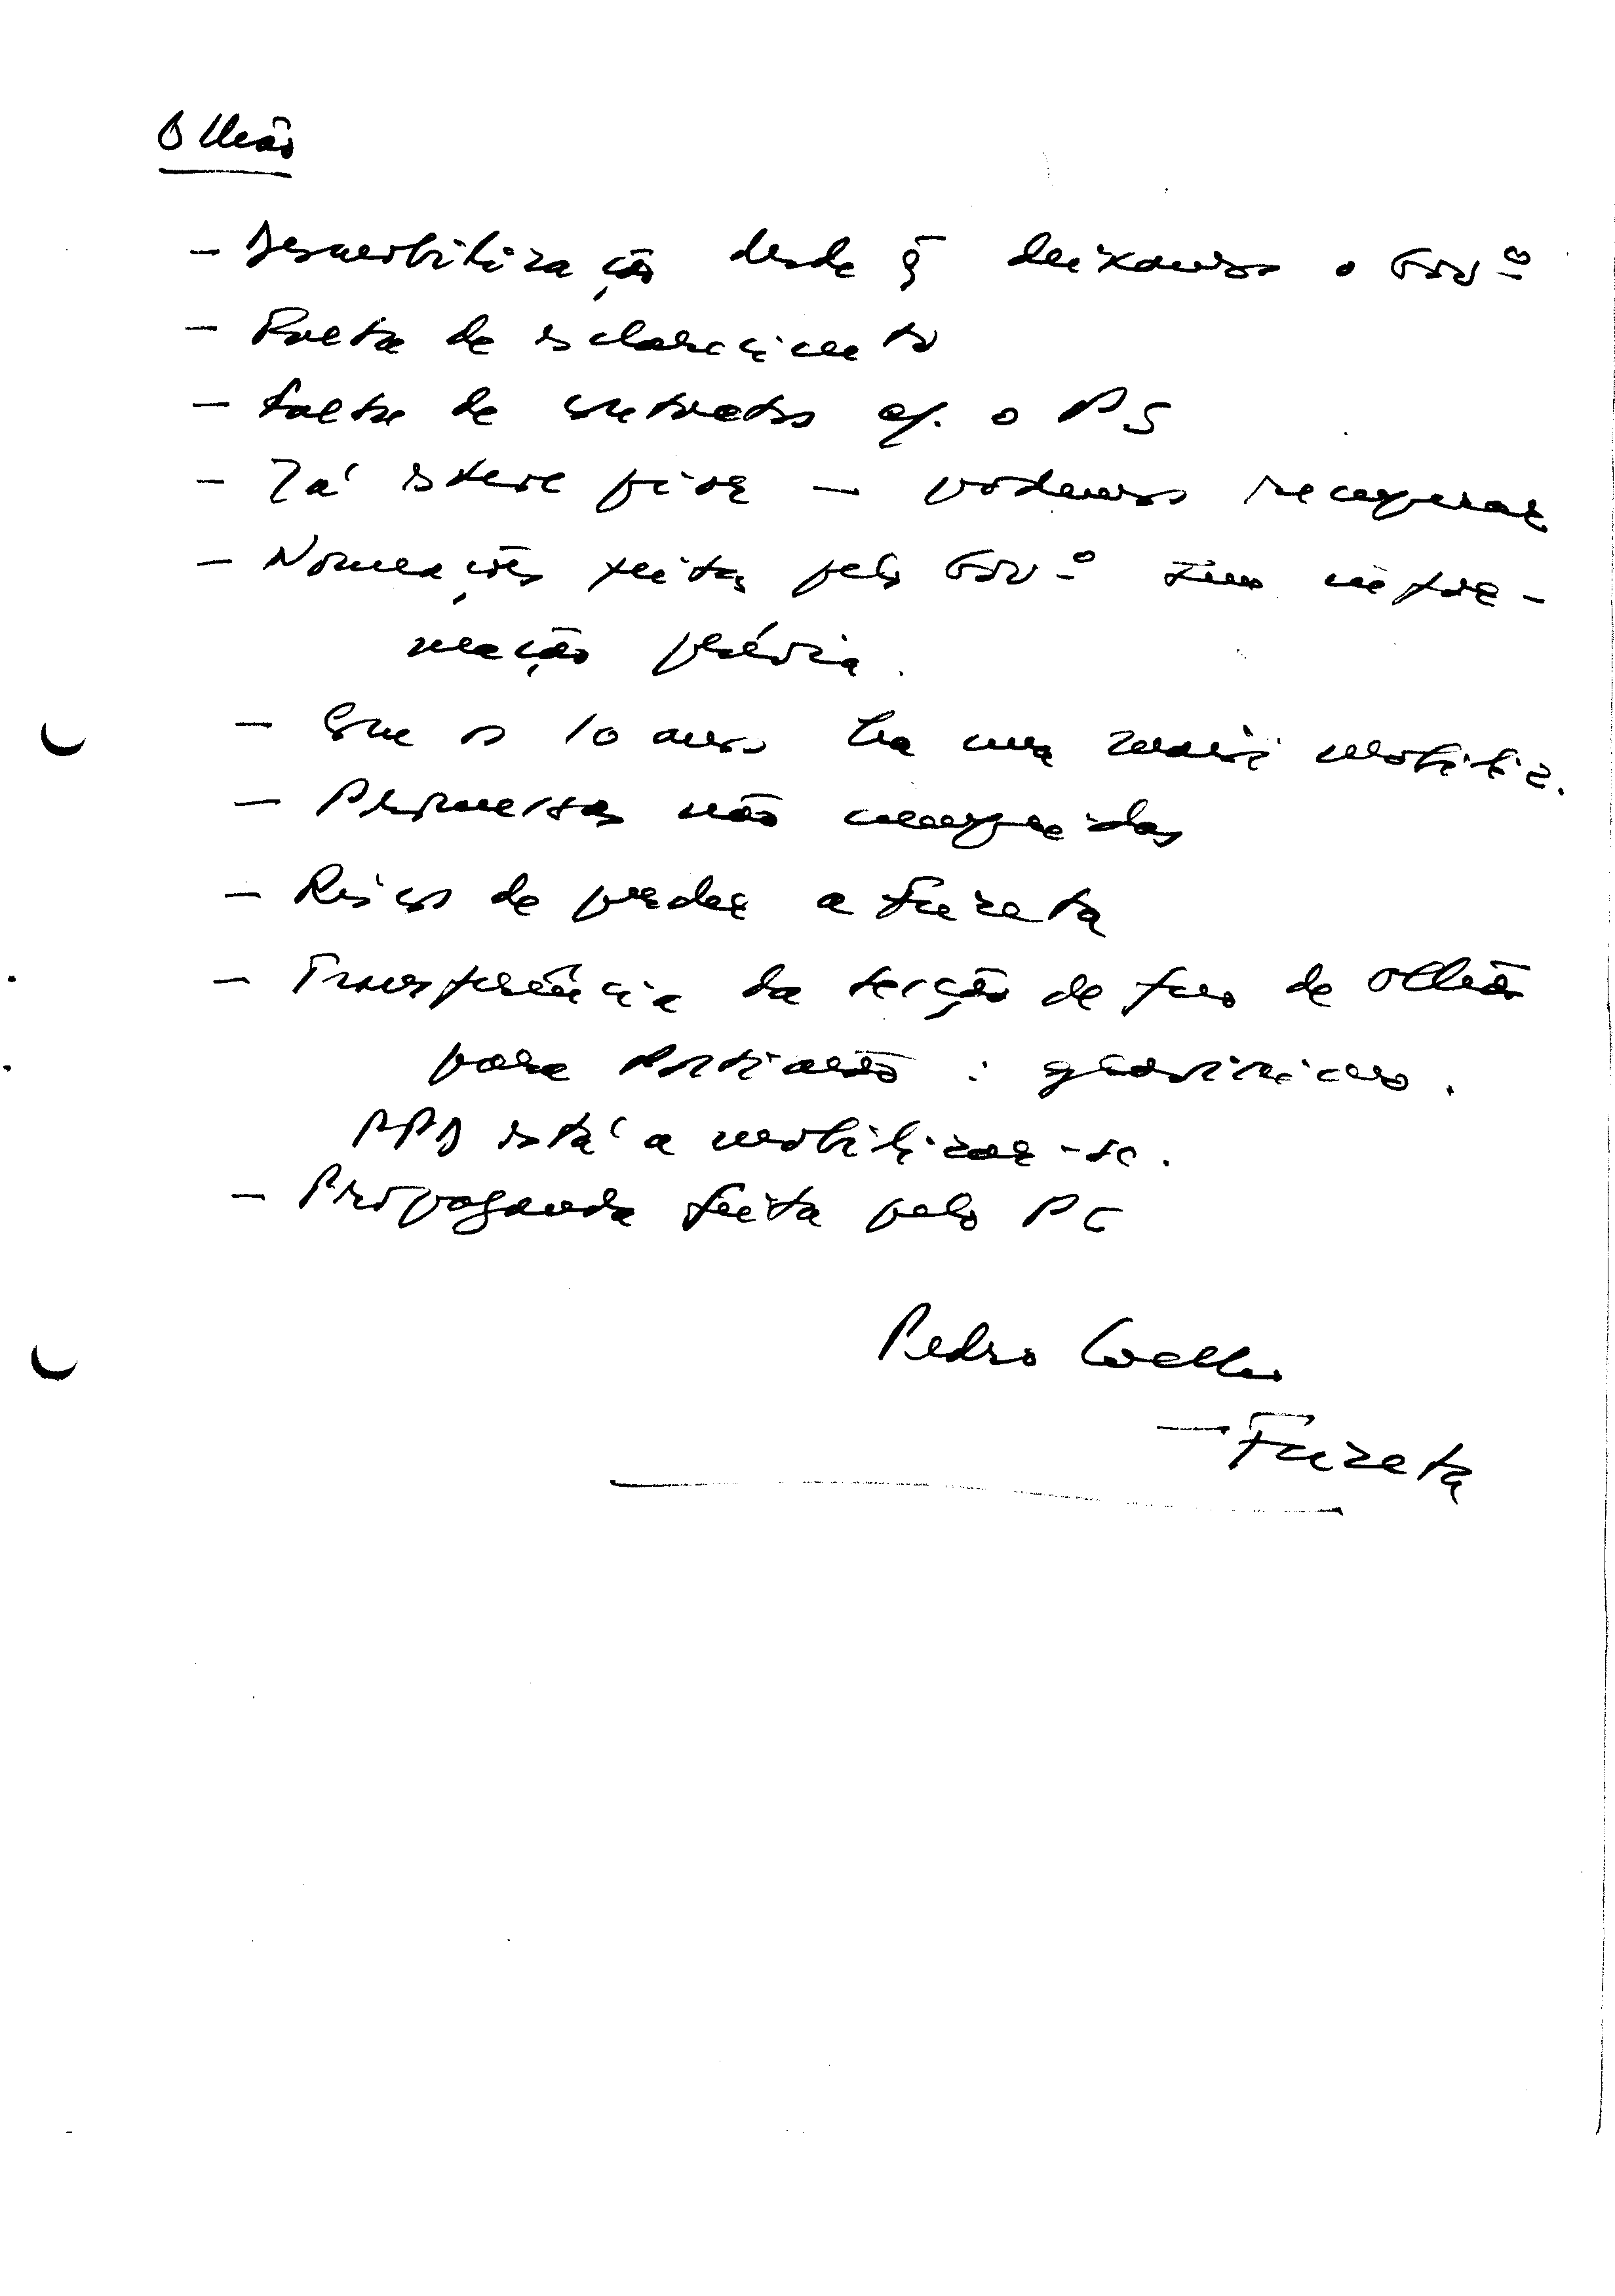 Olhão
- Desmobilização desde q̃ deixamos o Govº
- Falta de esclarecimento
- Falta de contactos c/. o PS
- Já esteve pior - podemos recuperar
- Nomeações feitas pelo Govº sem infor-
mação prévia.
- Que os 10 anos há uma maior mobiliz.
- Promessas não cumpridas
- Risco de perder a Fuzeta
- Transferência da secção de fino de Olhão
para Portimão : gravíssimo.
PPD está a mobilizar-se.
- Propaganda feita pelo PC
Pedro Coelho
- Fuzeta